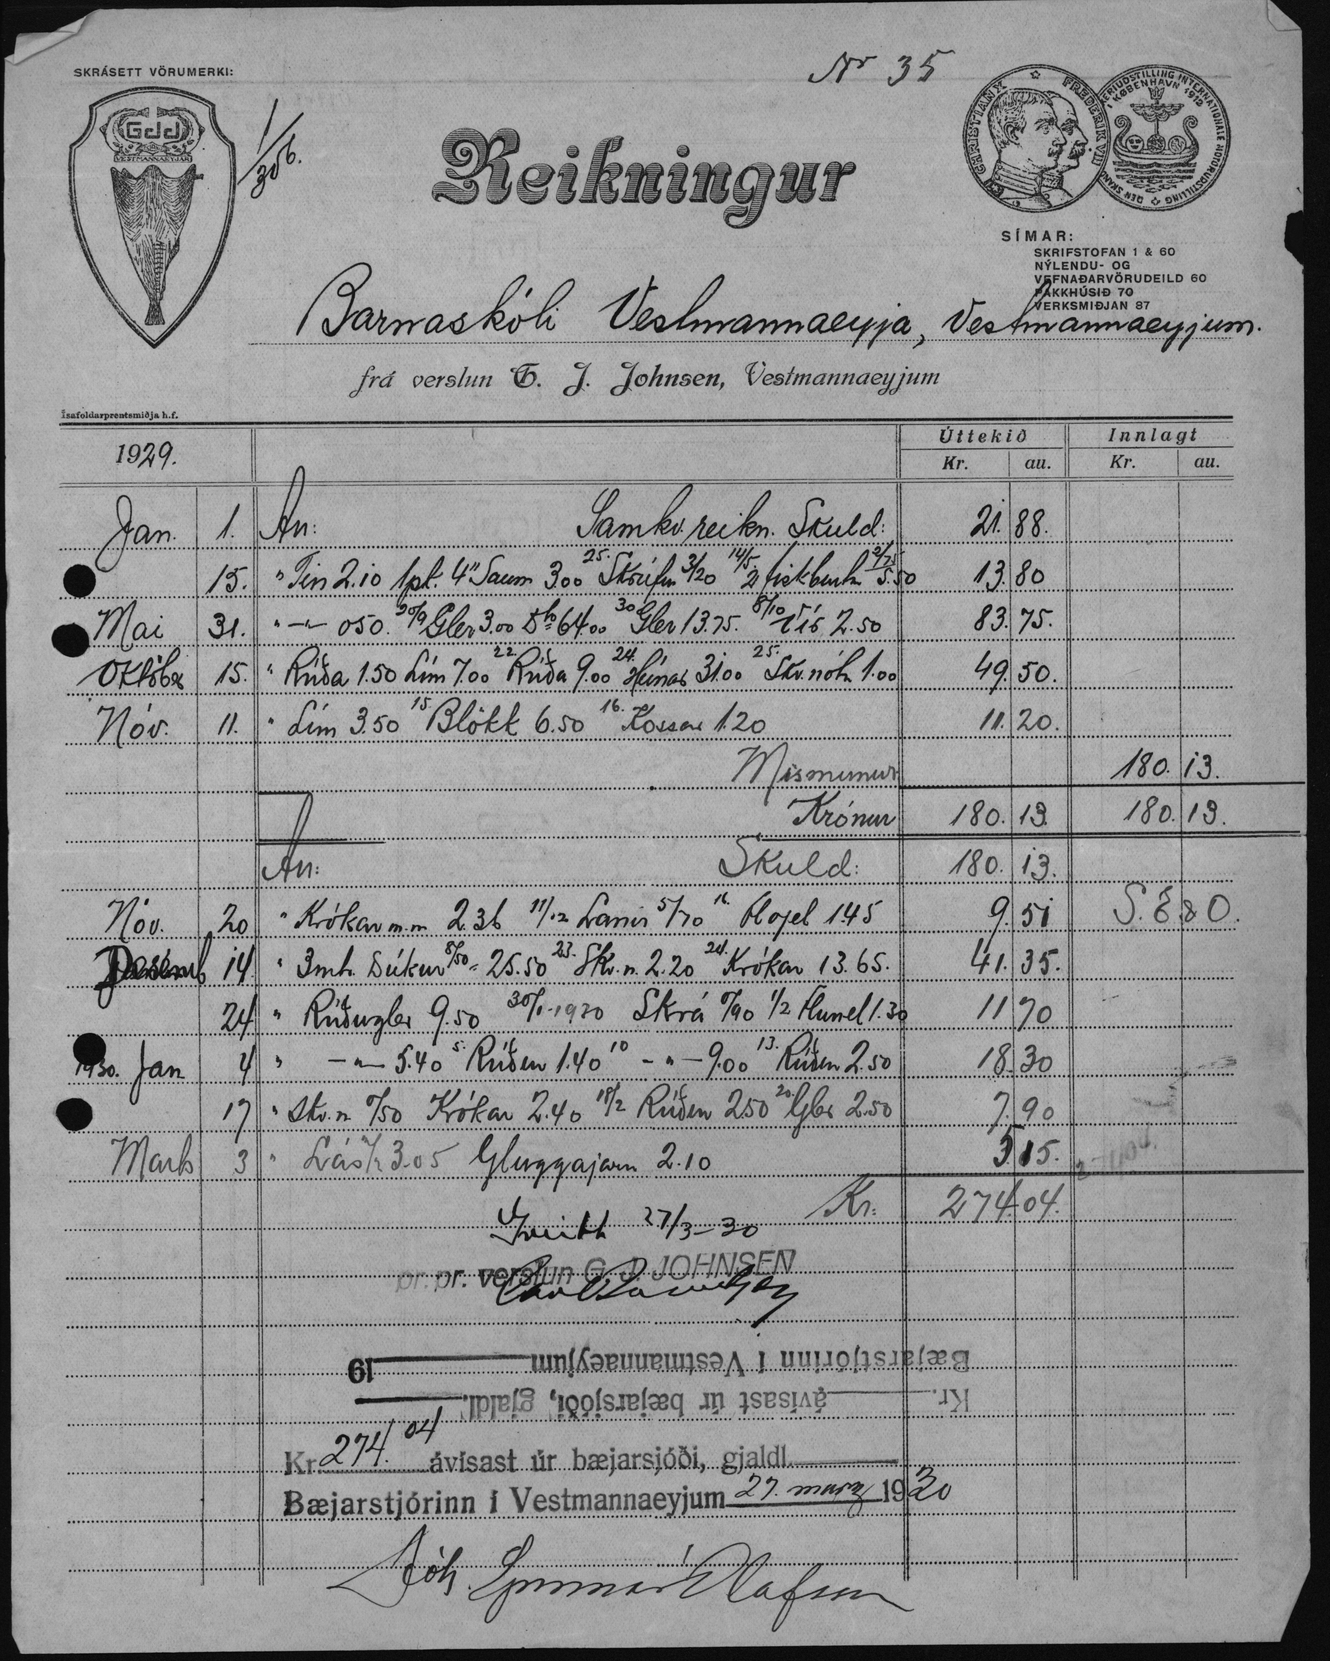 Nr 35
SKRÁSETT VÖRUMERKI:
GJJ
VESTMANNAEYJAR
1/30 6.
Reikningur
CHRISTIAN X FREDERIK VIII
KØBENHAVN 1912
SÍMAR:
SKRIFSTOFAN 1 & 60
NÝLENDU- OG
VEFNAÐARVÖRUDEILD 60
PAKKHÚSIÐ 70
VERKSMIÐJAN 87
Barnaskóli Vestmannaeyja, Vestmannaeyjum.
frá verslun G. J. Johnsen, Vestmannaeyjum
Ísafoldarprentsmiðja h.f.
1929. Úttekið Innlagt
Kr. au. Kr. au.
Jan. 1. An: Samkv. reikn. Skuld: 21. 88.
15. " Tin 2.10 1 pk. 4" Saum 3.00 25. 3/20 14/5 2 5.50 13. 80
Mai 31. " —"— 050. 20/9 Gler 3.00 64.00 30 Gler 13.75. 8/10 2.50 83. 75.
Október 15. " Rúða 1.50 Lím 7.00 22 Rúða 9.00 24. 31.00 25. 1.00 49. 50.
Nóv. 11. " Lím 3.50 15. Blökk 6.50 16. Kossar 1.20 11. 20.
Mismunur 180. 13.
Krónur 180. 13. 180. 13.
An: Skuld: 180. 13.
Nóv. 20 " Krókar m.m 2.36 11/12 5/70 16. 1.45 9. 51 S. E & O.
Desemb 14. " 3 mtr. Dúkur 8/50 = 25.50 23. Skr. n. 2.20 24. Krókar 13.65. 41. 35.
24 " Rúðugler 9.50 1930 Skrá 0/90 1/2 1.30 11 70
1930. Jan 4 " —"— 5.40 5. Rúðen 1.40 10 —"— 9.00 13. Rúðen 2.50 18. 30
17 " Skr. n 0/50 Krókar 2.40 18/2 Rúðen 2.50 20. Gler 2.50 7. 90
Marts 3 " 3.05 Gluggajarn 2.10 5. 15.
Kr: 274. 04.
27/3-30
pr. pr. verslun G. J. JOHNSEN
Bæjarstjórinn í Vestmannaeyjum 19
Kr. ávísast úr bæjarsjóði, gjaldl.
Kr. 274.04 ávísast úr bæjarsjóði, gjaldl.
Bæjarstjórinn í Vestmannaeyjum 27. marz 1930
Jóh. Gunnar Ólafsson